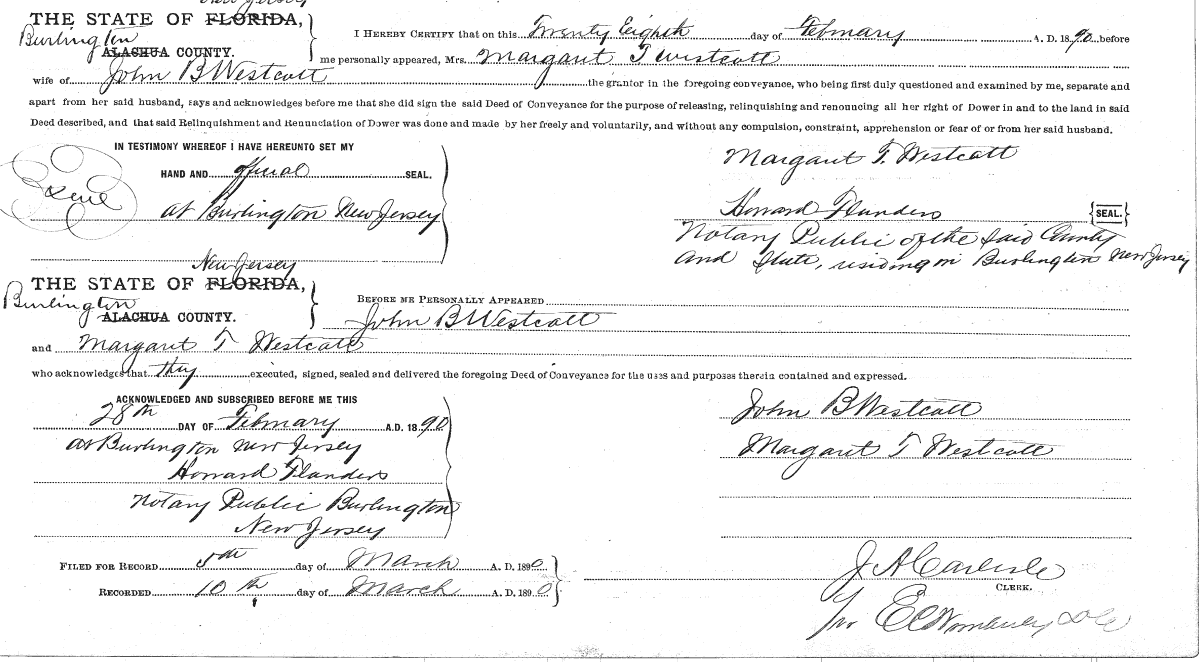 New Jersey
THE STATE OF FLORIDA,
Burlington
ALACHUA COUNTY.
I HEREBY CERTIFY that on this Twenty Eighth day of February A. D. 1890 before
me personally appeared, Mrs. Margaret T Westcott
wife of John B Westcott the grantor in the foregoing conveyance, who being first duly questioned and examined by me, separate and
apart from her said husband, says and acknowledges before me that she did sign the said Deed of Conveyance for the purpose of releasing, relinquishing and renouncing all her right of Dower in and to the land in said
Deed described, and that said Relinquishment and Renunciation of Dower was done and made by her freely and voluntarily, and without any compulsion, constraint, apprehension or fear of or from her said husband.
IN TESTIMONY WHEREOF I HAVE HEREUNTO SET MY
HAND AND official SEAL.
Seal
at Burlington New Jersey
Margaret T. Westcott
Howard Flanders {SEAL.}
Notary Public of the said County
and State, residing in Burlington New Jersey
New Jersey
THE STATE OF FLORIDA,
Burlington
ALACHUA COUNTY.
BEFORE ME PERSONALLY APPEARED
John B Westcott
and Margaret T Westcott
who acknowledges that they executed, signed, sealed and delivered the foregoing Deed of Conveyance for the uses and purposes therein contained and expressed.
ACKNOWLEDGED AND SUBSCRIBED BEFORE ME THIS
28th DAY OF February A.D. 1890
at Burlington New Jersey
Howard Flanders
Notary Public Burlington
New Jersey
John B Westcott
Margaret T Westcott
FILED FOR RECORD 5th day of March A. D. 1890
RECORDED 10th day of March A. D. 1890
J A Carlisle
CLERK.
per E C Wimberly DC